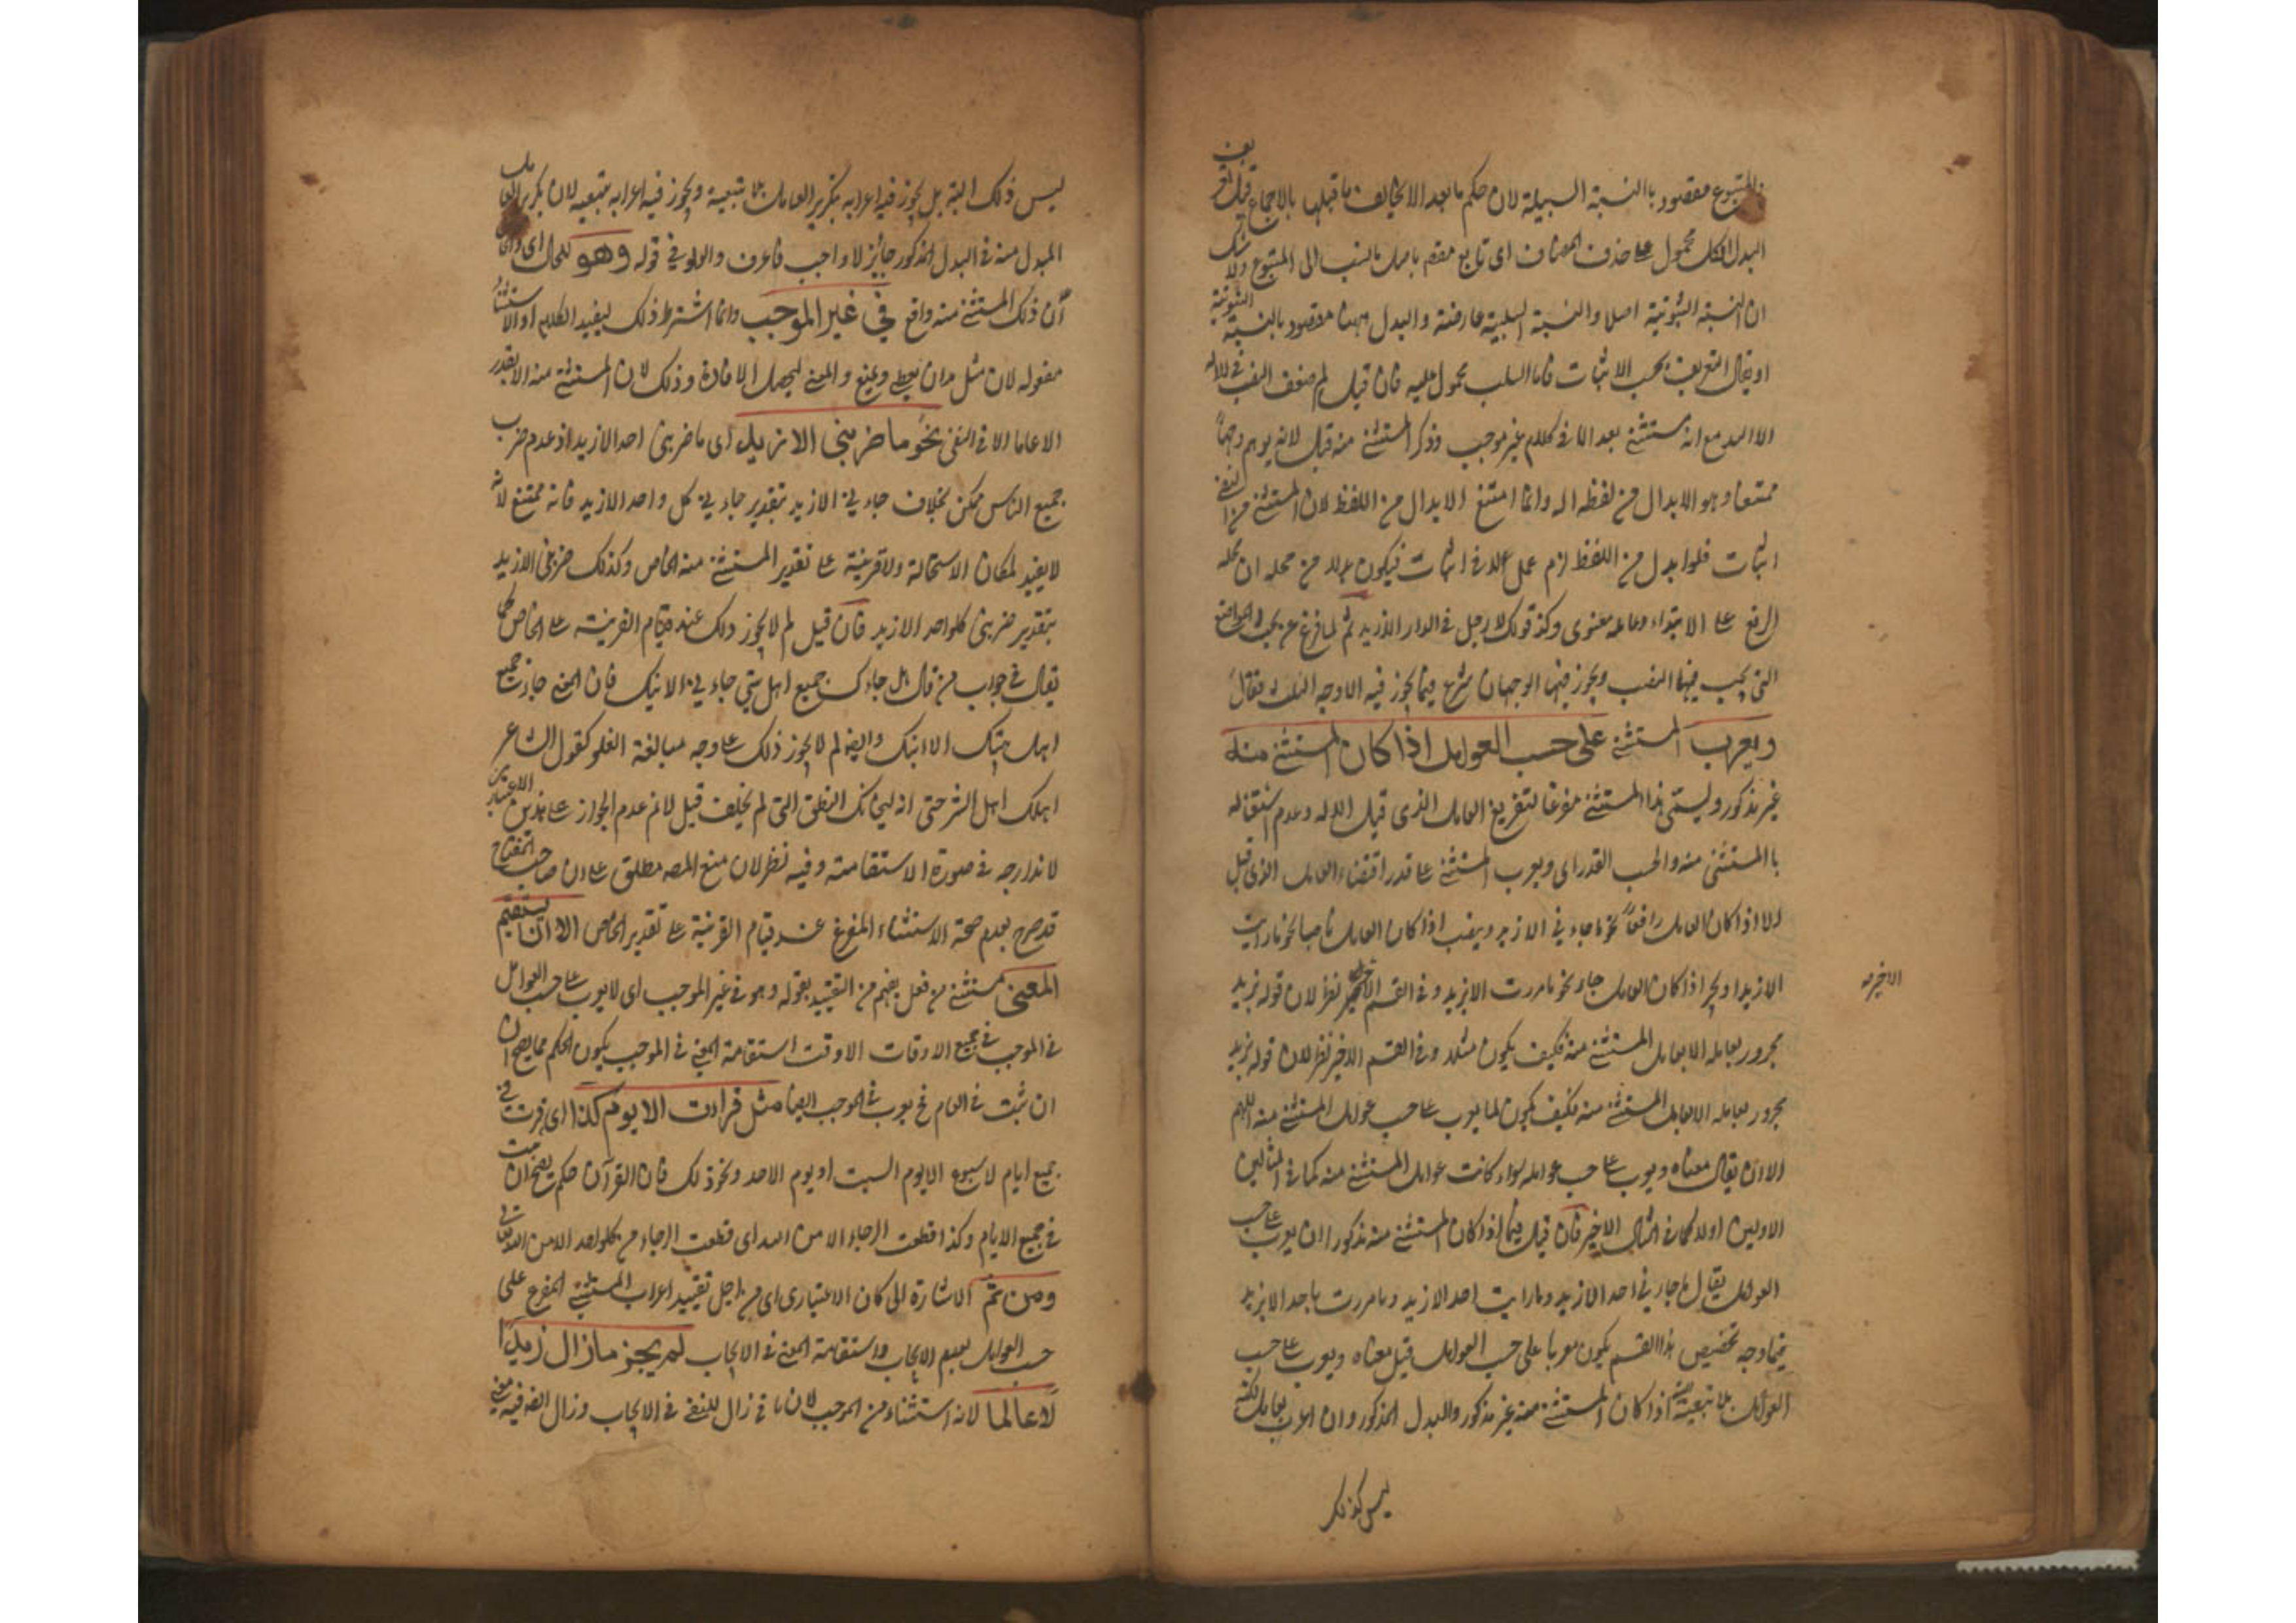 المتبوع مقصود بالنسبة السلبية لان حكم ما بعد الا يخالف ما قبلها بالاجماع قيل تعريف
البدل الكل محمول على حذف المضاف اى تابع بالنسب الى المتبوع ولا شك
ان النسبة الثبوتية اصلا والنسبة السلبية عارضة والبدل ههنا مقصود بالنسبة الثبوتية
او يقال التعريف بحسب الاثبات فاما السلب محمول عليه فان قيل لم ضعف النصب فى لا اله
الا الله مع انه مستثنى بعد الا فى كلام غير موجب وذكر المستثنى منه قبل لانه يوهم وجها
ممتنعا وهو الابدال من لفظ اله وانما امتنع الابدال من اللفظ لان المستثنى من النفى
اثبات فلو ابدل من اللفظ لزم عمل لا فى اثبات فيكون من محله ان محله
الرفع على الابتداء وعامله معنوى وكذ قولك لا رجل فى الدار الا زيد ثم لما فرغ عن المواضع
التى يجب فيها النصب ويجوز فيها الوجهان شرع فيما يجوز فيه الاوجه الثلث فقال
ويعرب المستثنى على حسب العوامل اذا كان المستثنى منه
غير مذكور ويسمى هذا المستثنى مفرغا لتفريغ العامل الذى قبل الا له وعدم اشتغاله
با المستثنى منه والحسب القدر اى ويعرب المستثنى على قدر اقتضاء العامل الذى قبل
الا اذا كان العامل رافعا نحو ما جاءنى الا زيد وينصب اذا كان العامل ناصبا نحو ما رايت
الا زيدا ويجر اذا كان العامل جار نحو ما مررت الا بزيد وفى القسم الاخير نظر لان قوله بزيد
الاخير
مجرور بعامله لا بعامل المستثنى منه فكيف يكون مثله وفى القسم الاخير نظر لان قوله بزيد
مجرور بعامله لا بعامل المستثنى منه فكيف يكون لما يعرب على حسب عوامل المستثنى منه اللهم
الا ان يقال معناه ويعرب على حسب عوامله سواء كانت عوامل المستثنى منه كما فى المثالين
الاولين اولا كما فى المثال الاخير فان قيل فيما اذا كان المستثنى منه مذكورا ان يعرب على حسب
العوامل يقال ما جاءنى احد الا زيد وما رايت احد الا زيد وما مررت باحد الا بزيد
فما وجه تخصيص هذا القسم بكون معربا على حسب العوامل قيل معناه ويعرب على حسب
العوامل بلا تبعية اذا كان المستثنى منه غير مذكور والبدل المذكور وان اعرب بعامل لكنه
ليس كذلك
ليس ذلك البتة بل يجوز فيه اعرابه بتكرير العامل بلا تبعية ويجوز فيه اعرابه بتبعيه لان تكرير العامل
المبدل منه فى البدل المذكور جائز لا واجب فاعرف والواو فى قوله وهو للحال اى والحال
ان ذلك المستثنى منه واقع فى غير الموجب وانما اشترط ذلك ليفيد الكلام او الاستثناء
مفعوله لان مثل يعطى ويمنع والمعنى ليحصل الافادة وذلك لان المستثنى منه لا يقدر
الا عاما الا فى النفى نحو ما ضربنى الا زيد اى ما ضربنى احد الا زيد اذ عدم ضرب
جميع الناس ممكن بخلاف جاءنى الا زيد بتقدير جاءنى كل واحد الا زيد فانه ممتنع لانه
لا يفيد لمكان الاستحالة ولا قرينة على تقدير المستثنى منه الخاص وكذلك ضربنى الا زيد
بتقدير ضربنى كلواحد الا زيد فان قيل لم لا يجوز ذلك عند قيام القرينة على الخاص كما
يقال فى جواب من قال هل جاءك جميع اهل بيتى جاءنى الا بنك فان المعنى جاءنى جميع
اهل بيتك الا ابنك وايضا لم لا يجوز ذلك على وجه مبالغة الغلو كقول الشاعر
اهلك اهل الشرحتى انه ليخانك النطق التى لم يخلف قيل لا نم عدم الجواز على هذين الاعتبارين
لاندارجه فى صورة الاستقامة وفيه نظر لان منع المصه مطلق على ان صاحب المفتاح
قد صرح بعدم صحة الاستثناء المفرغ عند قيام القرينة على تقدير الخاص الا ان يستقيم
المعنى مستثنى من فعل يفهم من التقييد بقوله وهو فى غير الموجب اى لا يعرب على حسب العوامل
فى الموجب فى جميع الاوقات الا وقت استقامة المعنى فى الموجب بكون الحكم مما يصح ان
ان ثبت فى العام فح يعرب فى الموجب ايضا مثل قرات الا يوم كذا اى قرات فى
جميع ايام لاسبوع الا يوم السبت او يوم الاحد ونحو ذلك فان القرآن حكم يصح ان يثبت
فى جميع الايام وكذا قطعت الرجاء الا من الله اى قطعت الرجاء من كلواحد الا من الله
ومن ثم الاشارة الى كان الاعتبارى اى من اجل تقييد اعراب المستثنى المفرغ على
حسب العوامل بعدم الايجاب واستقامة المعنى فى الايجاب لم يجز ما زال زيد ا
لا عالما لانه استثناء من الموجب لان ما فى زال للنفى فى الايجاب وزال ايضه فيه معنى